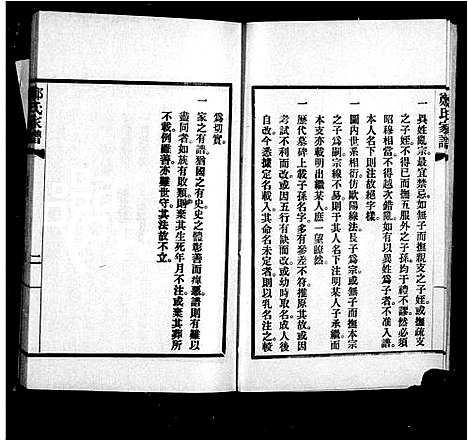 鄭氏家譜
一異姓亂宗最宜禁忌如無子而撫親支之子姪或撫疏支
之子姪不得已而撫五服外之子孫均于禮不謬然必須
昭穆相當不得越次錯亂如有以異姓爲子者不准入譜
本人名下則注故絕字樣
一圖內世系相衍仿歐陽線法長子爲宗或無子而撫本宗
之子爲嗣宗線不易則于其人名下注明某人子承繼而
本支亦載明出繼某人庶一望瞭然
一歷代墓碑上載子孫名字多有參差不符推原其故或因
考試不利而改或因五行有缺而改或幼時取名成人後
自改今悉據定名載入其未定名者則以乳名注之較
爲切實
一家之有譜猶國之有史史之體彰善而癉惡譜則有難以
盡同者如族有敗類則棄其生死年月不注或棄其葬所
不載例雖善亦難世守其法故不立
鄭氏家譜
二